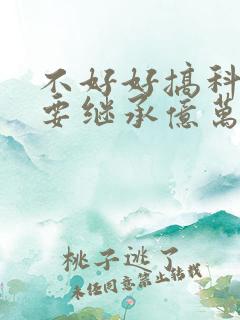 不好好搞科
要继承億萬
桃子逃了
未经同意禁止转载